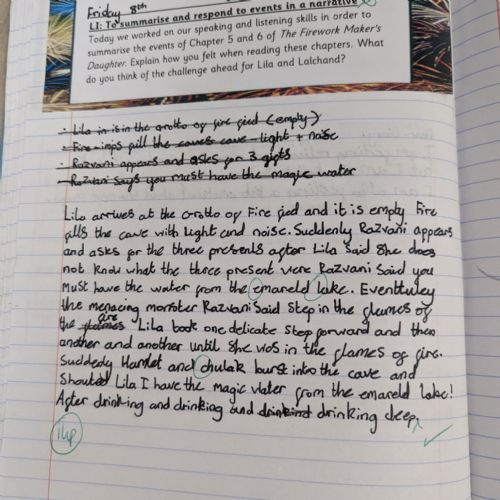 Friday 8th
LI: To summarise and respond to events in a narrative
Today we worked on our speaking and listening skills in order to
summarise the events of Chapter 5 and 6 of The Firework Maker's
Daughter. Explain how you felt when reading these chapters. What
do you think of the challenge ahead for Lila and Lalchand?
· Lila in is in the grotto of fire fied (empty)
· Fire imps fill the caves cave light + noise
· Razvani appears and asks for 3 gifts
· Razvani says you must have the magic water
Lila arrives at the Grotto of Fire fied and it is empty Fire
fills the cave with Light and noise. Suddenly Razvani appears
and asks for the three presents after Lila said She does
not know what the three present were Razvani said you
Must have the water from the emareld lake. Eventtuley
the menacing monster Razvani Said Step in the flames of
the flames fire Lila took one delicate Step forward and then
another and another until She was in the flames of fire.
Suddedy Hamlet and chulak burst into the cave and
Shouted Lila I have the magic water from the emareld lake!
After drinking and drinking and drinkind drinking deep,